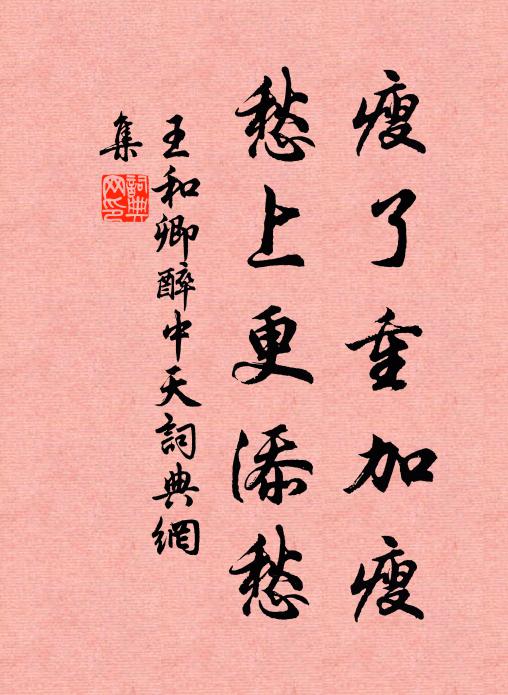 瘦了重加瘦
愁上更添愁
王和卿醉中天詞典網
集
詞典網印